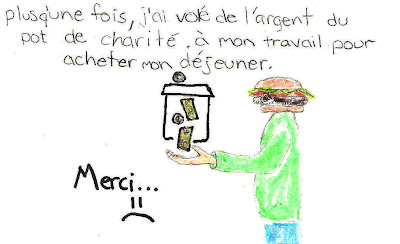 plusqu'une fois, j'ai volé de l'argent du
pot de charité. à mon travail pour
acheter mon déjeuner.
Merci...